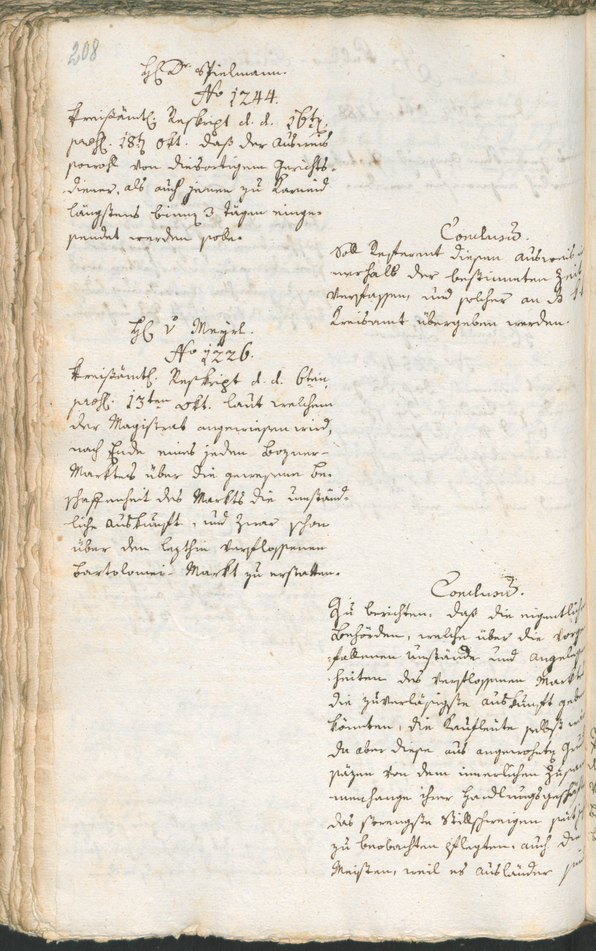 208
H. Dr. Spielmann.
No 1244.
Kreisämtl. Reskript d. d. 16t
pras. 18t Okt. daß der Ausweis
sowohl von diesortigem Gerichts-
diener, als auch jenem zu Karneid
längstens binnen 3 Tägen einge-
sendet werden solle.
Conclusum.
Soll Referent diesen Ausweis
nerhalb der bestimmten Zeit
verfassen, und solcher an
Kreisamt übergeben werden.
H. v Mayrl.
No 1226.
Kreisämtl. Reskript d. d. 6ten
pras. 13ten Okt. laut welchem
der Magistrat angewiesen wird,
nach Ende eines jeden Bozner-
Markts über die gewesene Be-
schaffenheit des Markts die umständ-
liche Auskunft, und zwar schon
über den letzthin verflossenen
Bartolomei-Markt zu erstatten.
Conclusum.
Zu berichten, daß die eigentliche
Behörden, welche über die vorge-
fallenen Umstände und Angelegen-
heiten des verflossenen Markts
die zuverläsigste Auskunft geben
könnten, die Kaufleute selbst
da aber diese aus angewohnten
säzen von dem innerlichen Zusam-
menhange ihrer Handlungsgeschäfte
das strengste Stillschweigen
zu beobachten pflegten, auch die
Meisten, weil es Ausländer